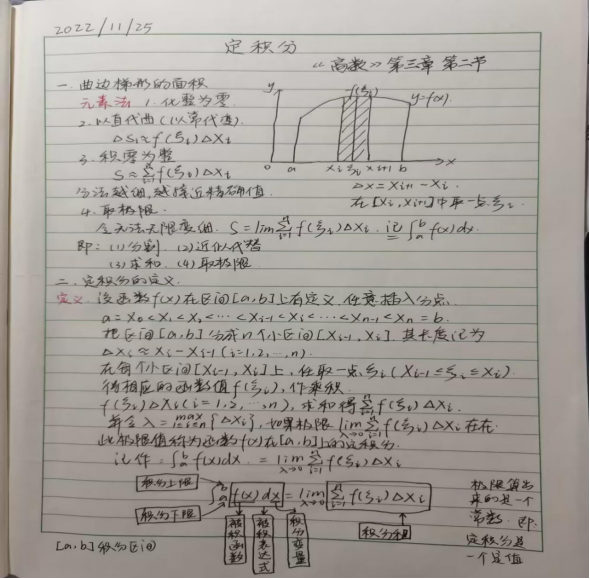 2022/11/25
定积分
《高数》第三章 第二节
一.曲边梯形的面积
元素法 1.化整为零
2.以直代曲(以常代变)
△Si≈f(ξi)△Xi
3.积零为整
S≈∑f(ξi)△Xi
分法越细,越接近精确值
4.取极限
令分法无限变细. S=lim∑f(ξi)△Xi. 记 ∫f(x)dx.
即:(1)分割 (2)近似代替
(3)求和 (4)取极限
y
f(ξi)
y=f(x).
o a Xi ξi Xi+1 b x
△x=Xi+1-Xi.
在[Xi,Xi+1]中取一点ξi.
二.定积分的定义
定义.设函数f(x)在区间[a,b]上有定义.任意插入分点.
a=X0<X1<X2<…<Xi-1<Xi<…<Xn-1<Xn=b.
把区间[a,b]分成n个小区间[Xi-1,Xi].其长度记为
△Xi≈Xi-Xi-1(i=1,2,…,n).
在每个小区间[Xi-1,Xi]上,任取一点ξi(Xi-1≤ξi≤Xi)
得相应的函数值f(ξi),作乘积
f(ξi)△Xi(i=1,2,…,n),求和得∑f(ξi)△Xi.
并令λ=max{△Xi},如果极限lim∑f(ξi)△Xi存在.
此极限值称为函数f(x)在[a,b]上的定积分.
记作:∫f(x)dx.=lim∑f(ξi)△Xi
积分上限
∫f(x)dx=lim∑f(ξi)△Xi
积分下限
被积函数
被积表达式
积分变量
积分和
[a,b]积分区间
极限算出
来的是一个
常数.即:
定积分是
一个定值